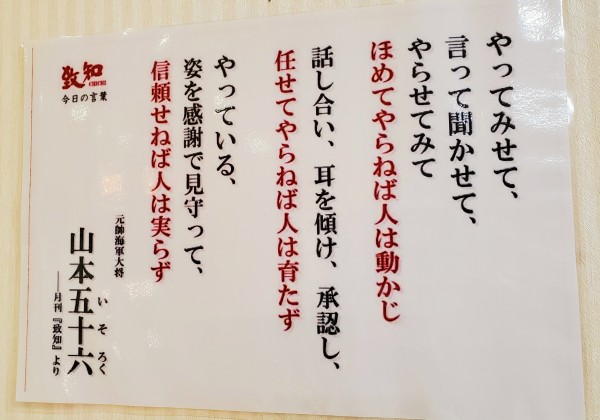 やってみせて、
言って聞かせて、
やらせてみて
ほめてやらねば人は動かじ
話し合い、耳を傾け、承認し、
任せてやらねば人は育たず
やっている、
姿を感謝で見守って、
信頼せねば人は実らず
元帥海軍大将
山本五十六
いそろく
――月刊『致知』より
致知
CHICHI
今日の言葉